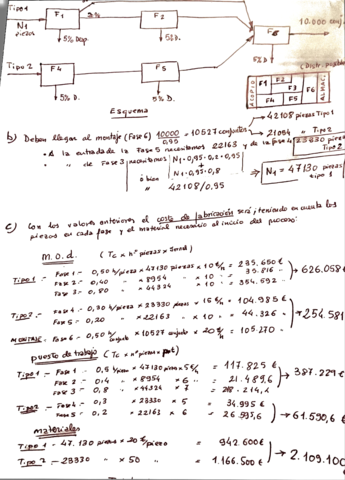 Tipo 1
N1
piezas
F1
F2
10.000 conj.
F6
5% D.
5% D.
Tipo 2
F4
F5
5% D.
5% D.
5% D.
Esquema
F1 F2 F3 F6
F4 F5
42108 piezas Tipo 1
b) Deben llegar al montaje (Fase 6) 10000/0,95 = 10527 conjuntos
21054 " Tipo 2
• A la entrada de la Fase 5 necesitamos 22163 y de la fase 4 23330 piezas Tipo 2
• " de Fase 3 necesitamos N1·0,95·0,2·0,95
+
o bien N1·0,95·0,8
" 42108/0,95
N1 = 47130 piezas tipo 1
c) Con los valores anteriores el coste de fabricación será, teniendo en cuenta las
piezas en cada fase y el material necesario al inicio del proceso:
m.o.d. (Tc x nº piezas x Jornal)
Tipo 1 - Fase 1 - 0,50 h/pieza x 47130 piezas x 10 €/h = 235.650 €
Fase 2 - 0,40 " x 8954 " x 10 " = 35.816 -
Fase 3 - 0,80 " x 44324 " x 10 " = 354.592 -
626.058
Tipo 2 - Fase 4 - 0,30 h/pieza x 23330 piezas x 15 €/h = 104.985 €
Fase 5 - 0,20 " x 22163 " x 10 " = 44.326 -
MONTAJE - Fase 6 - 0,50 h/conjunto x 10527 conjuntos x 20 €/h = 105.270 -
254.581
puesto de trabajo (Tc x nº piezas x pt)
Tipo 1 - Fase 1 - 0,5 h/pieza x 47130 piezas x 5 €/h = 117.825 €
Fase 2 - 0,4 " x 8954 x 6 " = 21.489,6
Fase 3 - 0,8 " x 44324 x 7 " = 248.214,4
387.229
Tipo 2 - Fase 4 - 0,3 x 23330 x 5 = 34.995 €
Fase 5 - 0,2 x 22163 x 6 = 26.595,6
61.590,6 €
materiales
Tipo 1 - 47.130 piezas x 20 €/pieza = 942.600 €
Tipo 2 - 23330 " x 50 " = 1.166.500 €
2.109.100